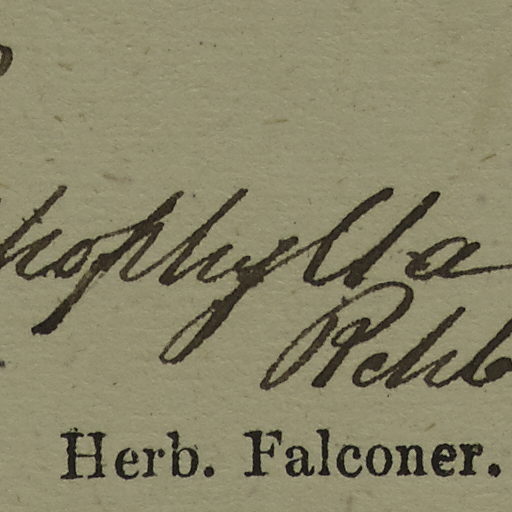 hophylla
Rchb
Herb. Falconer.